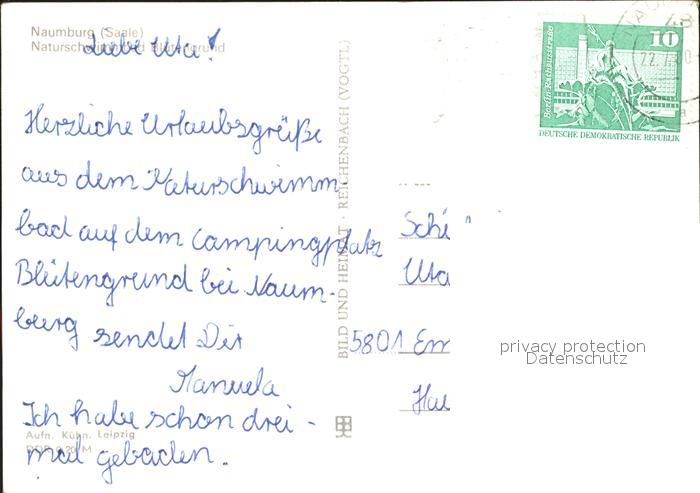 Naumburg (Saale)
Naturschwimmbad Blütengrund
Liebe Uta!
Herzliche Urlaubsgrüße
aus dem Naturschwimm-
bad auf dem Campingplatz
Blütengrund bei Naum-
burg sendet Dir
Manuela
Ich habe schon drei-
mal gebaden.
Aufn. Kühn, Leipzig
BILD UND HEIMAT · REICHENBACH (VOGTL)
Berlin-Rathausstraße
10
DEUTSCHE DEMOKRATISCHE REPUBLIK
Uta
5801 Em
Hau
privacy protection
Datenschutz